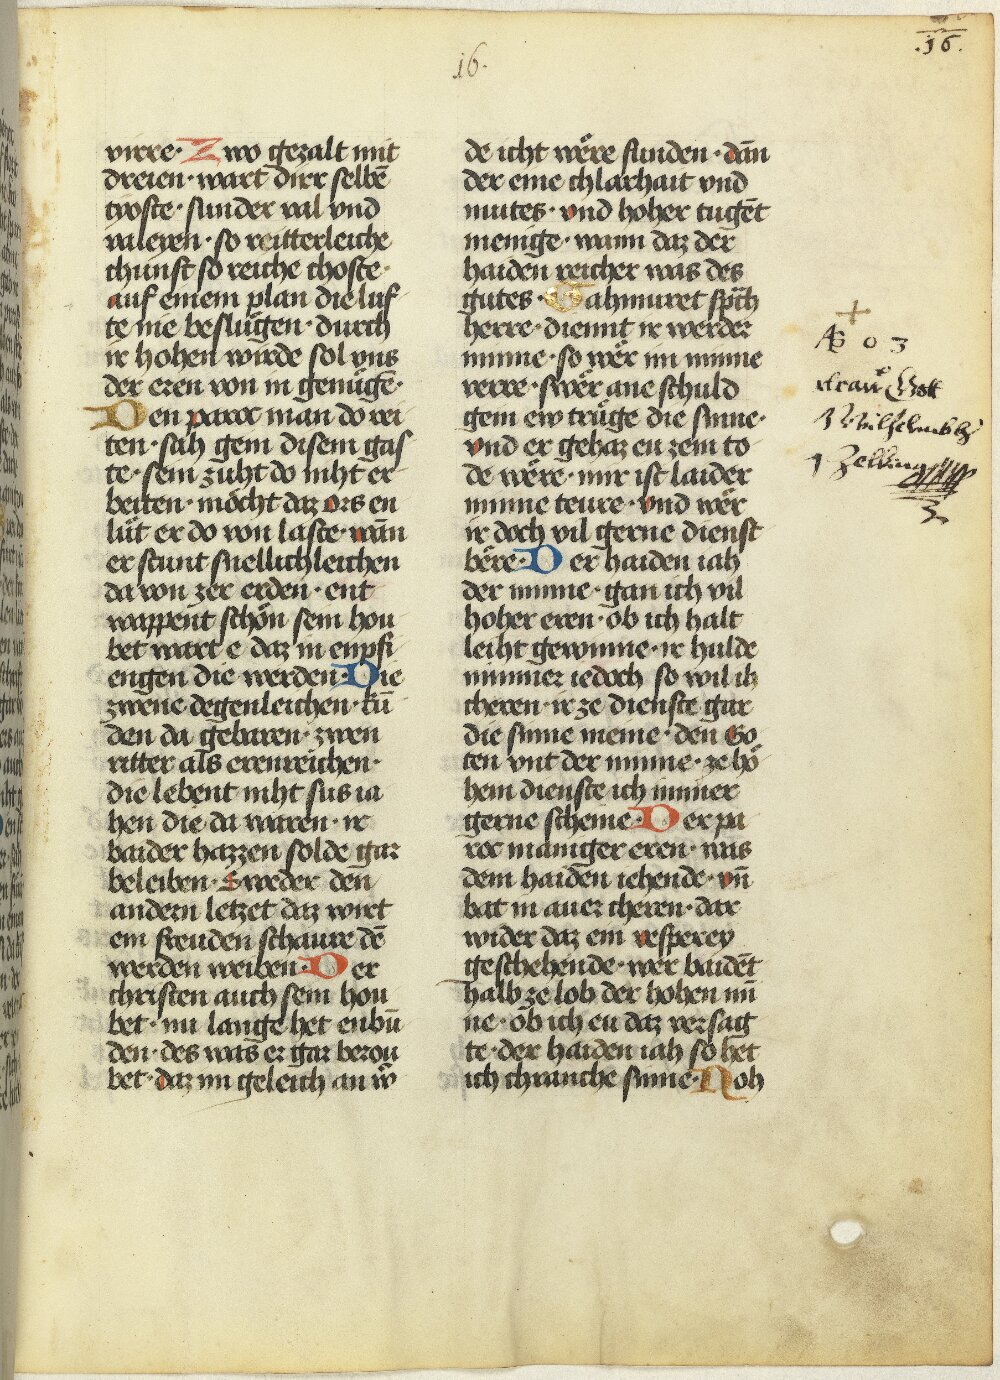 16.
.16.
virre· Zwo gezalt mit
dreien· wart dirr selbē
tyoste· sunder val vnd
valeyen· so reitterleiche
chunst so reiche choste·
auf einem plan die luf
te nie beslugen· durch
ir hohen wirde sol vns
der eren von in genugē·
Den paroc man do rei
ten· sach gem disem gas
te· sein zuht do niht er
beiten· möcht daz ors en
lüt er do von laste· wān
er stunt snellichleichen
da von zer erden· ent
wappent schön sein hou
bet wart e daz in enpfi
engen die werden· Die
zwene degenleichen· kū
den da gebaren· zwen
ritter als erenreichen·
die lebent niht sus ia
hen die da waren· ir
baider hazzen solde gar
beleiben· Sweder den
andern letzet daz wirt
ein freuden schaure dē
werden weiben· Der
christen auch sein hou
bet· nu lange het enbū
den· des was er gar berou
bet· daz im geleich an w
de icht wëre funden· dān
der eine chlarhait vnd
mutes· vnd hoher tugēt
menige· wann daz der
haiden reicher was des
gutes· Gahmuret sp̄ch
herre· diennt ir werder
minne· so wër im minne
verre· swër ane schuld
gem ew trüge die sinne·
vnd er gehaz eu zem to
de wëre· mir ist laider
minne teure· vnd wër
ir doch vil gerne dienst
bëre· Der haiden iah
der minne· gan ich vil
hoher eren· ob ich halt
leiht gewinne· ir hulde
nimmer iedoch so wil ih
cheren· ir ze dienste gar
die sinne meine· den Go
ten vnt der minne· ze hö
hem dienste ich immer
gerne scheine· Der pa
roc maniger eren· was
dem haiden iehende· vn̄
bat in auer cheren· dar
wider daz ein vesperey
geschehende· wer baidēt
halb ze lob der hohen mī
ne· ob ich eu daz versag
te· der haiden iah so het
ich chranche sinne· Noh
603
Gott